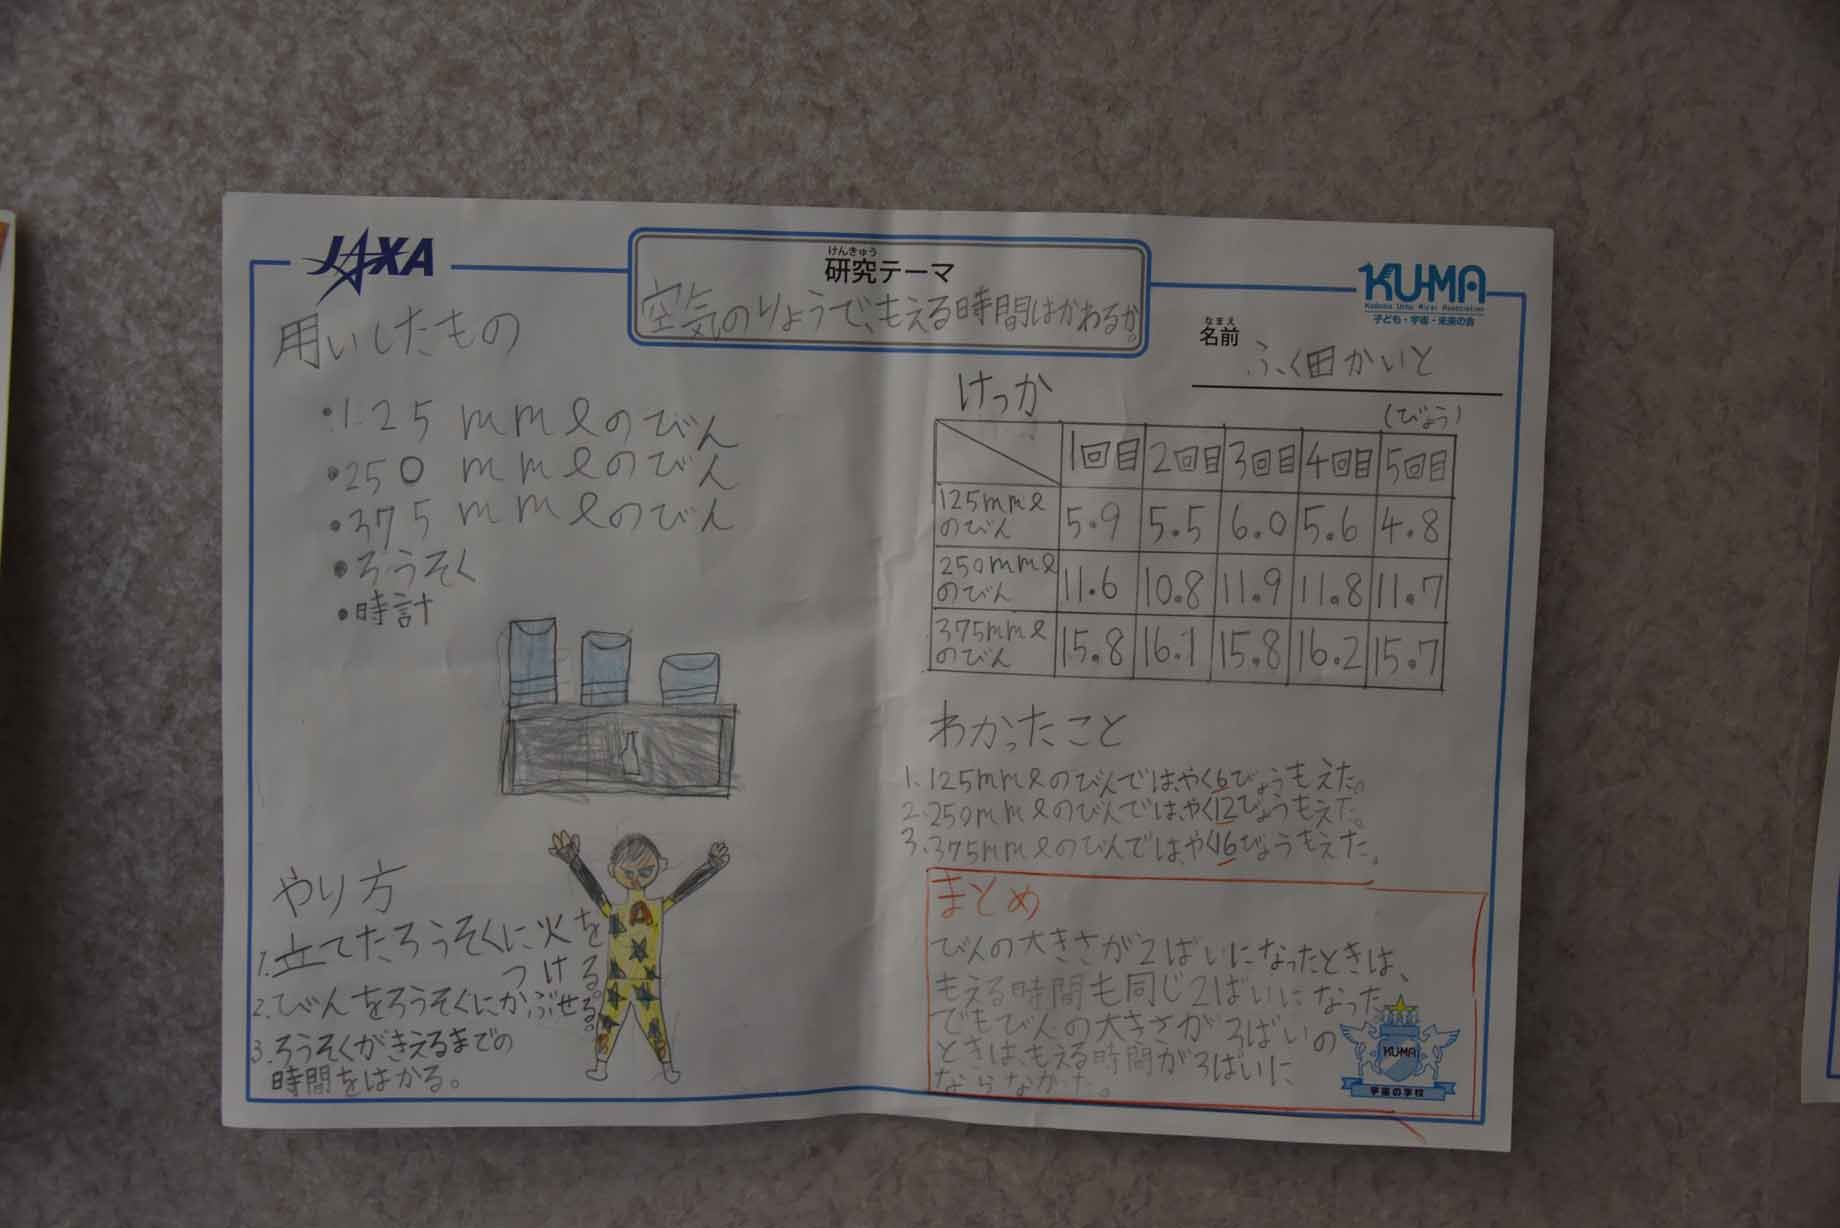 JAXA
けんきゅう
研究テーマ
空気のりょうで、もえる時間はかわるか。
KU-MA
Kodomo Uchu Mirai Association
子ども・宇宙・未来の会
なまえ
名前
ふく田かいと
用いしたもの
・125mmlのびん
・250mmlのびん
・375mmlのびん
・ろうそく
・時計
やり方
1. 立てたろうそくに火を
つける。
2. びんをろうそくにかぶせる。
3. ろうそくがきえるまでの
時間をはかる。
A
けっか
(びょう)
1回目 2回目 3回目 4回目 5回目
125mml
のびん 5.9 5.5 6.0 5.6 4.8
250mml
のびん 11.6 10.8 11.9 11.8 11.7
375mml
のびん 15.8 16.1 15.8 16.2 15.7
わかったこと
1. 125mmlのびんでは、やく6びょうもえた。
2. 250mmlのびんでは、やく12びょうもえた。
3. 375mmlのびんでは、やく16びょうもえた。
まとめ
びんの大きさが2ばいになったときは、
もえる時間も同じ2ばいになった。
でもびんの大きさが3ばいの
ときは、もえる時間が3ばいに
ならなかった。
KU-MA
宇宙の学校